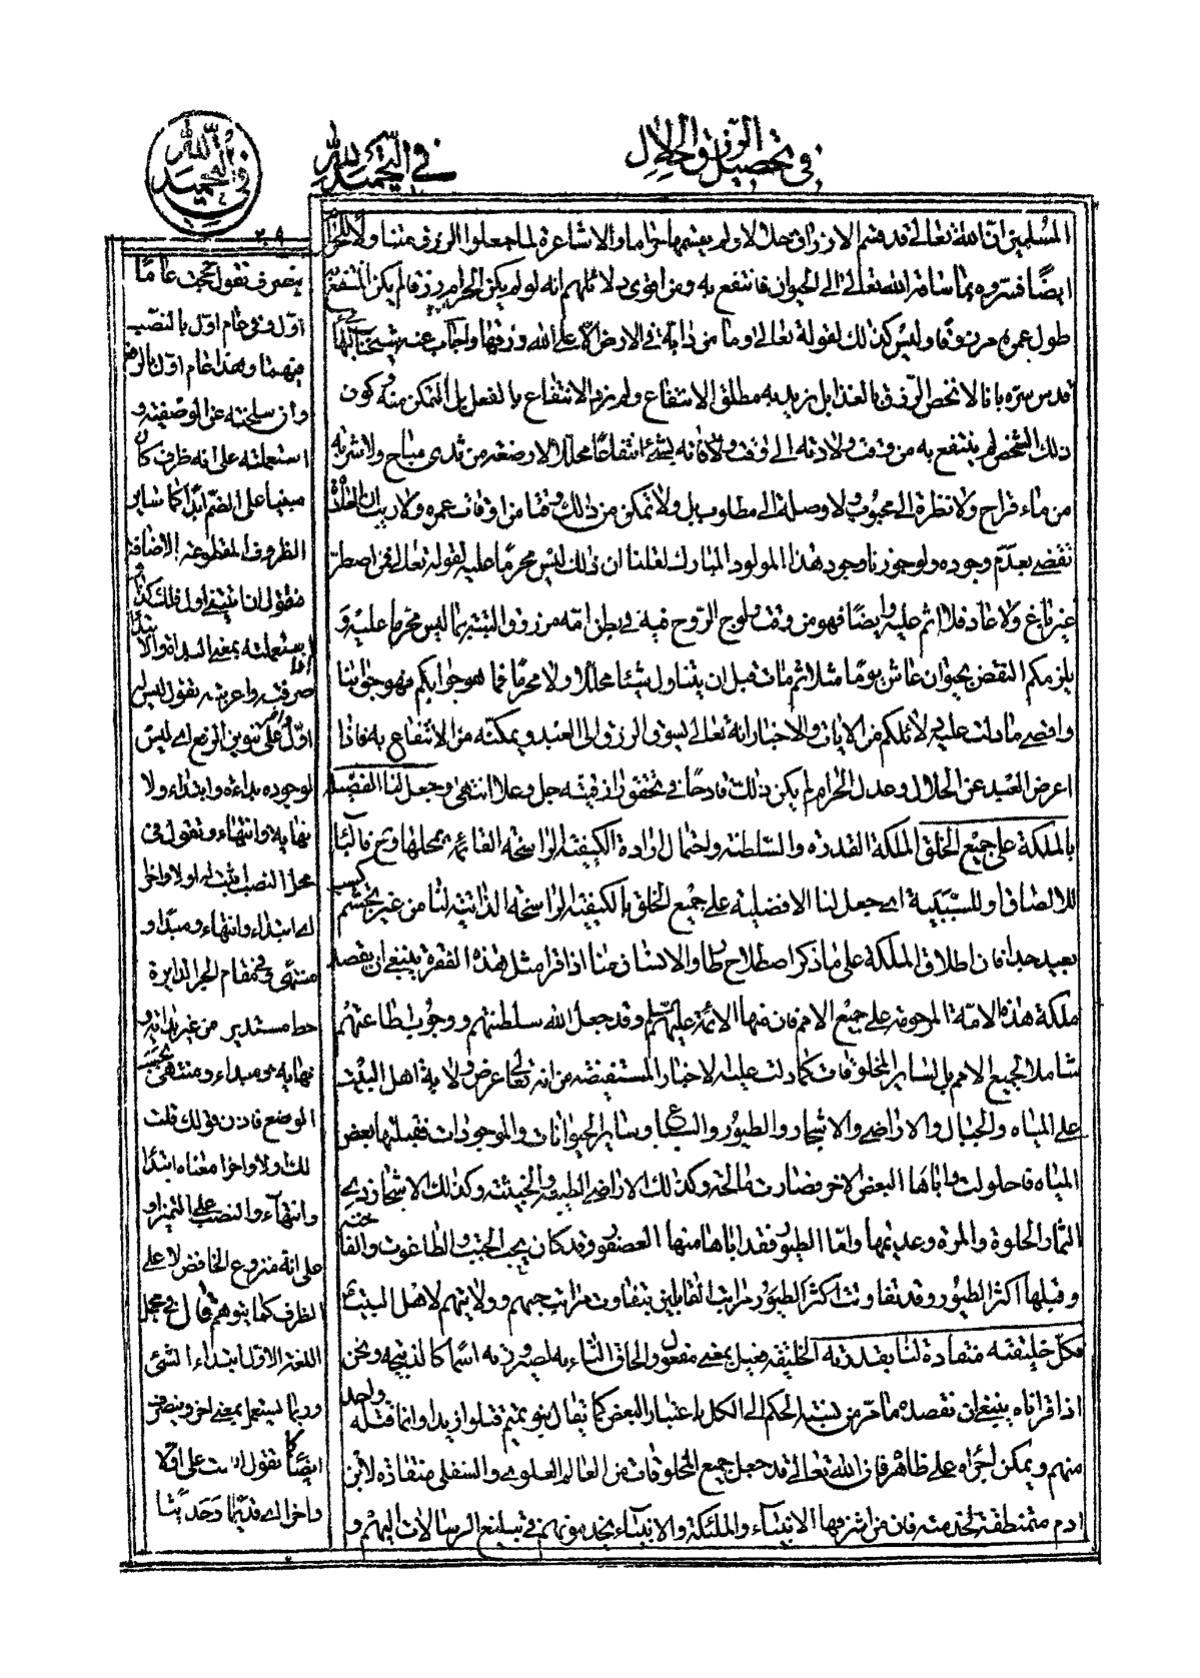 في تحصيل الرزق الحلال
في التحميد لله
في التحميد لله
٢٩
المسلمين ان الله تعالى قد قسم الارزاق حلالا ولم يقسمها حراما والاشاعرة لما جعلوا الرزق متناولا للحرام
ايضا فسروه بما ساقه الله تعالى الى الحيوان فانتفع به ومن اقوى دلائلهم انه لو لم يكن الحرام رزقا لم يكن المنتفع به
طول عمره مرزوقا وليس كذلك لقوله تعالى وما من دابة في الارض الا على الله رزقها واجاب عنه شيخنا البهائي
قدس سره بانا لا نخص الرزق بالغذاء بل نريد به مطلق الانتفاع ولم نرد الانتفاع بالفعل بل التمكن منه فكون
ذلك الشخص لم ينتفع به من وقت ولادته الى وقت وفاته بشئ انتفاعا محللا ولا رضعة من ثدى مباح ولا شربة
من ماء قراح ولا نظرة الى محبوب ولا وصلة الى مطلوب بل ولا تمكن من ذلك وقتا من اوقات عمره ولا ريب ان العادة
تقضى بعدم وجوده ولو جوزنا وجود هذا المولود المبارك لقلنا ان ذلك ليس محرما عليه لقوله تعالى فمن اضطر
غير باغ ولا عاد فلا اثم عليه وايضا فهو من وقت ولوج الروح فيه في بطن امه مرزوق بما ليس محرما عليه و
يلزمكم النقض بحيوان عاش يوما مثلا ثم مات قبل ان يتناول شيئا محللا ولا محرما فما هو جوابكم فهو جوابنا
واقصى ما دلت عليه دلائلكم من الايات والاخبار انه تعالى يسوق الرزق الى العبد ويمكنه من الانتفاع به فاذا
اعرض العبد عن الحلال وعدل الى الحرام لم يكن ذلك قادحا في تحقق رازقيته جل وعلا انتهى وجعل لنا الفضيلة
بالملكة على جميع الخلق الملكة القدرة والسلطنة واحتمال ارادة الكيفية الراسخة القائمة بمحلها فالباء
للالصاق او للسببية اى جعل لنا الافضلية على جميع الخلق بالكيفية الراسخة الذاتية لنا من غير تجشم كسب
بعيد جدا فان اطلاق الملكة على ما ذكر اصطلاح طار والانسان منا اذا قرا مثل هذه الفقرة ينبغي ان يقصد
ملكة هذه الامة المرحومة على جميع الامم فان فيها الائمة عليهم السلام وقد جعل الله سلطنتهم ووجوب طاعتهم
شاملا لجميع الامم بل لسائر المخلوقات كما دلت عليه الاخبار المستفيضة من انه تعالى عرض ولاية اهل البيت
على المياه والجبال والاراضي والاشجار والطيور والسباع وسائر الحيوانات والموجودات فقبلتها بعض
المياه فاحلولت واباها البعض الاخر فصارت مالحة وكذلك الاراضي الطيبة والخبيثة وكذلك الاشجار ذوي
الثمار الحلوة والمرة وعديمها واما الطيور فقد اباها منها العصفور وقد كان يحب الجبت والطاغوت والفاختة
وقبلها اكثر الطيور وقد تفاوتت اكثر الطيور مراتب القابلين بتفاوت مراتب حبهم وولايتهم لاهل البيت
فكل خليقته منقادة لنا بقدرته الخليقة فعيل بمعنى مفعول والحاق التاء به لصيرورته اسما كالذبيحة ونحن
اذا قراناه ينبغي ان نقصد ما مر من نسبة الحكم الى الكل باعتبار البعض كما يقال بنو تميم قتلوا زيدا وانما قتله واحد
منهم ويمكن اجراه على ظاهره فان الله تعالى قد جعل جميع المخلوقات من العالم العلوى والسفلى منقادة لابن
ادم منتظمة لخدمته فان من اشرفها الانبياء والملئكة والانبياء يخدمونهم في تبليغ الرسالات اليهم و
ينصرف نقول حججت عاما
اول وفي عام اول بالنصب
فيهما وهذا عام اول بالرفع
وان سلخته عن الوصفية و
استعملته على انه ظرف كان
مبنيا على الضم ابدا كما سائر
الظروف المقطوعة الاضافة
فنقول ان اتيتني اول فلك كذا
استعملته بمعنى البداة والابتداء
صرفته واعربته تقول ليس له
اول على تنوين الرفع اى ليس
لوجوده بداءة وابتداء ولا
نهاية وانتهاء وتقول في
محل النصب اثبت له اولا واخرا
اى ابتداء وانتهاء ومبدا و
منتهى في مقام الجر الدايرة
خط مستدير من غير بداية و
نهاية ومبداء ومنتهى بحسب
الوضع فاذن قولك قلت
لك اولا واخرا معناه ابتداء
وانتهاء والنصب على التميز او
على انه منزوع الخافض لا على
الظرف كما يتوهم قال في مجمل
اللغة الاول ابتداء الشئ
وربما يستعمل بمعنى اخر وينصرف
ايضا كما تقول انت على اولا
واخرا اى قديما وحديثا